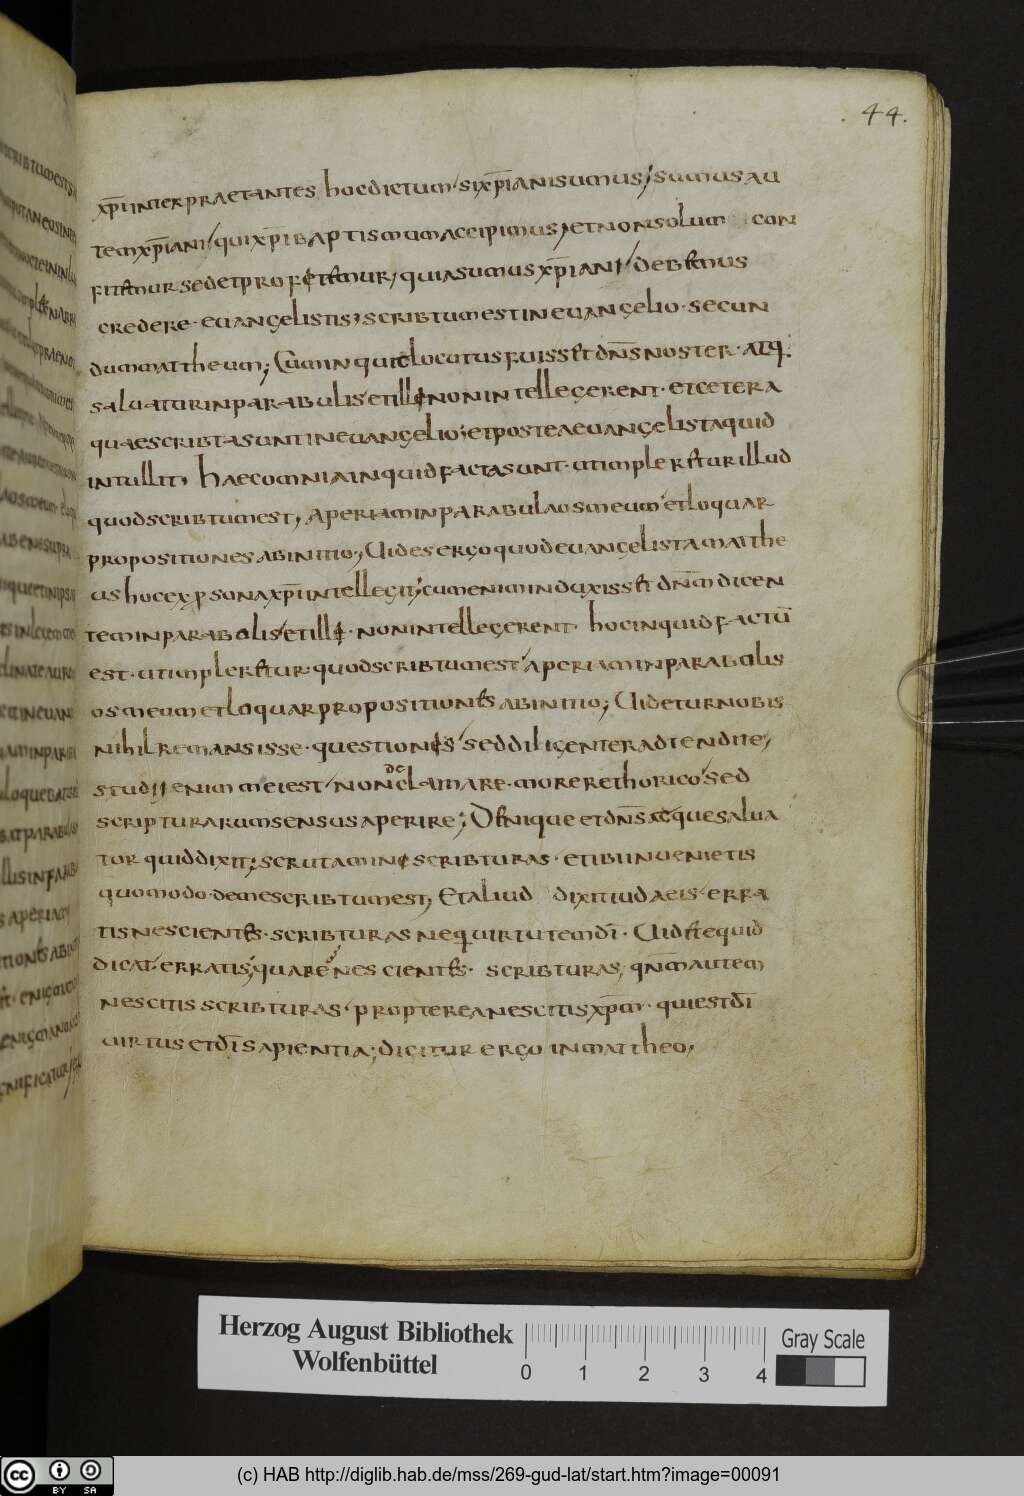 44.
xp̄i interpraetantes hoc dictum si xp̄iani sumus; sumus au
tem xp̄iani qui xp̄i baptismum accipimus; et non solum con
fitemur sed et profetemur, quia sumus xp̄iani debemus
credere · euangelistis, scribtum est in euangelio · secun
dum mattheum; Cum inquit locutus fuisset dn̄s noster · atq.
saluatur in parabulis et illę non intellegerent · et cetera
quae scribta sunt in euangelio; et postea euangelista quid
intullit, haec omnia inquid facta sunt · ut implerftur illud
quod scribtum est, Aperiam in parabula os meum et loquar
propositiones ab initio, Uides ergo quod euangelista matthe
us hoc ex psona xp̄i intellegit; cum enim induxisset dn̄m dicen
tem in parabolis et illę · non intellegerent · hoc inquid factū
est · ut impleretur quod scribtum est aperiam in parabolis
os meum et loquar propositiones ab initio; Uidetur nobis
nihil remansisse · questiones sed diligenter adtendite,
studii enim mei est non declamare · more rethorico sed
scripturarum sensus aperire; Denique et dn̄s acque salua
tor quid dixit; scrutamine scribturas · et ibi inuenietis
quomodo · de me scribtum est, Et aliud dixit iudaeis · erra
tis nescientes · scribturas neq uirtutem dī · Uidete quid
dicat · erratis, quare nescientes · scribturas, qn̄m autem
nescitis scribturas · propterea nescitis xp̄m · qui est dī
uirtus et dī sapientia; dicitur ergo in mattheo,
Herzog August Bibliothek
Wolfenbüttel
0 1 2 3 4
Gray Scale
cc BY SA
(c) HAB http://diglib.hab.de/mss/269-gud-lat/start.htm?image=00091